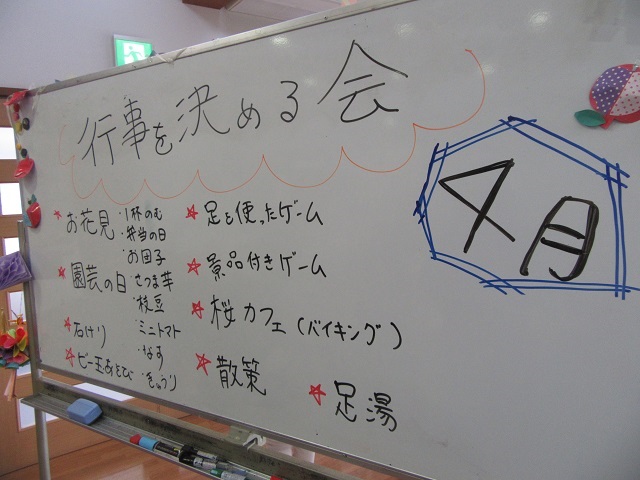 行事を決める会
4月
★お花見
・1杯のむ
・弁当の日
・お団子
★園芸の日
・さつま芋
・枝豆
・ミニトマト
・なす
・きゅうり
★石けり
★ビー玉あそび
★足を使ったゲーム
★景品付きゲーム
★桜カフェ(バイキング)
★散策
★足湯